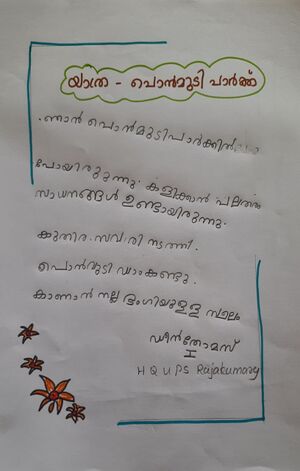 യാത്ര - പൊൻമുടി പാർക്ക്
ഞാൻ പൊൻമുടിപാർക്കിൽ
പോയിരുന്നു. കളിക്കാൻ പലതരം
സാധനങ്ങൾ ഉണ്ടായിരുന്നു.
കുതിര സവരി നടത്തി.
പൊൻമുടി ഡാംകണ്ടു.
കാണാൻ നല്ല ഭംഗിയുള്ള സ്ഥലം
ഡീൻതോമസ്
I
H Q U P S Rajakumary